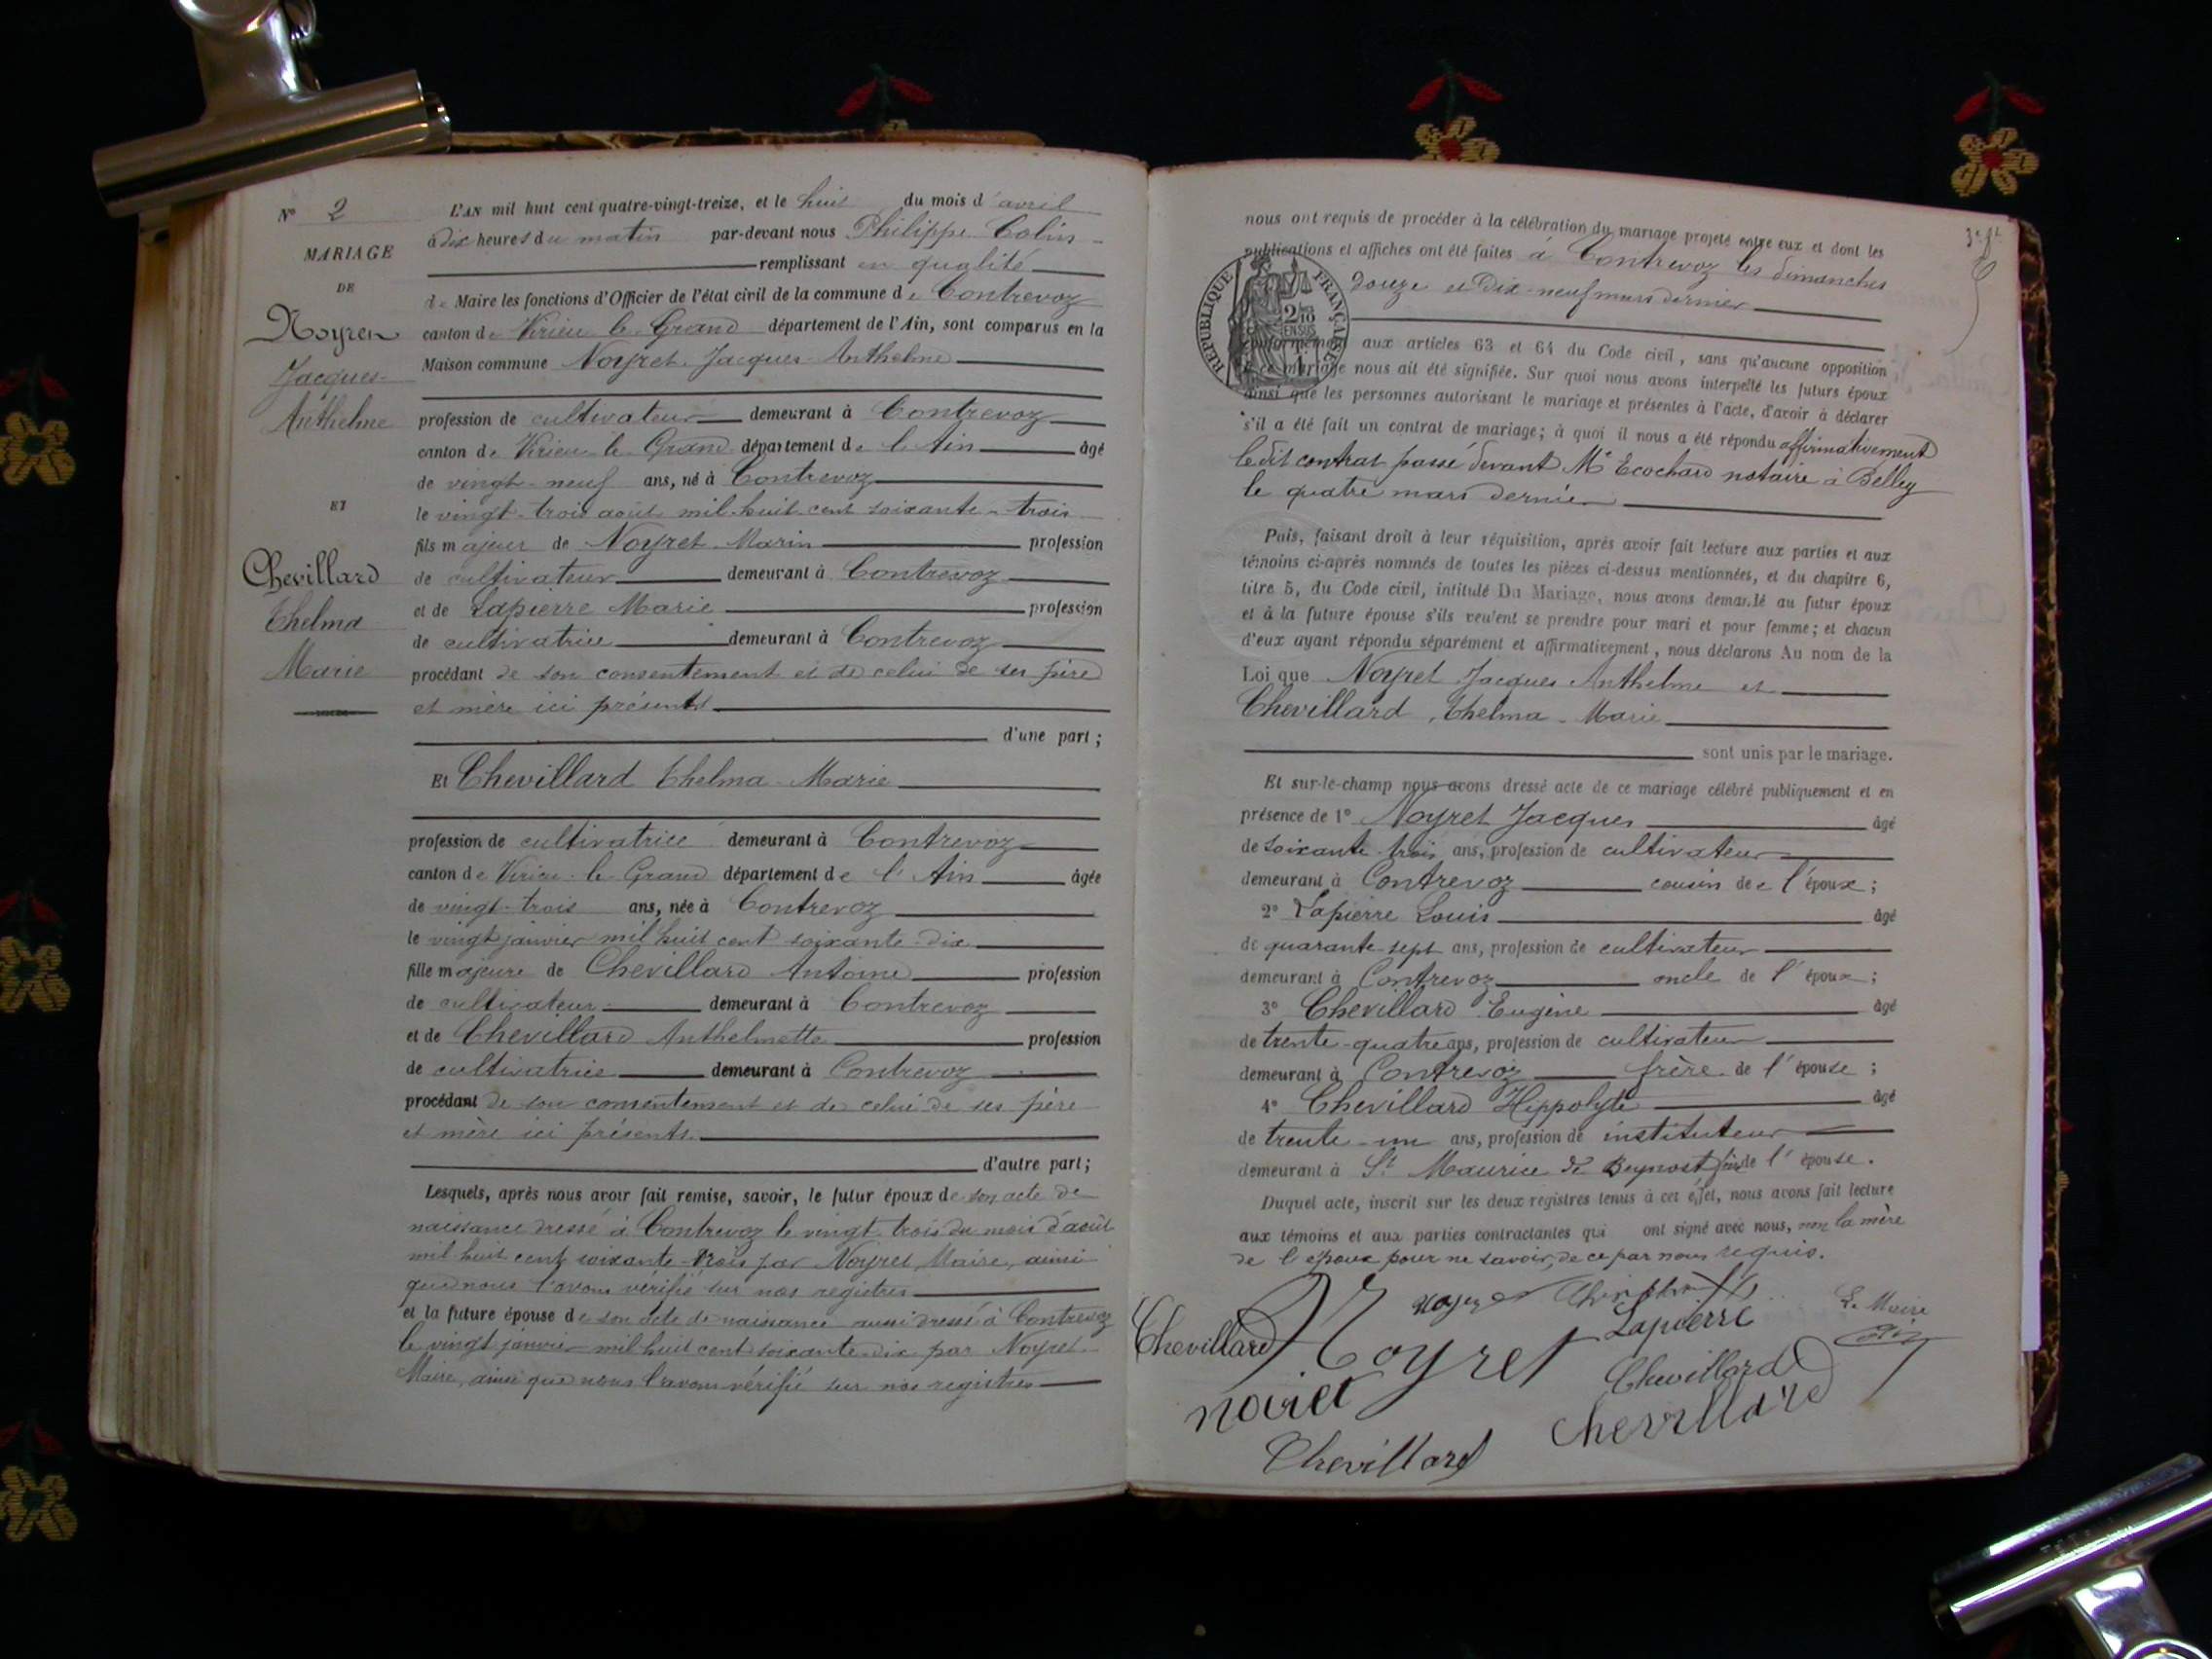 N° 2
MARIAGE
DE
Noyret
Jacques-
Anthelme
ET
Chevillard
Thelma
Marie
L'AN mil huit cent quatre-vingt-treize, et le huit du mois d'avril
à dix heures du matin par-devant nous Philippe Colin
remplissant en qualité
de Maire les fonctions d'Officier de l'état civil de la commune de Contrevoz
canton de Virieu le Grand département de l'Ain, sont comparus en la
Maison commune Noyret Jacques-Anthelme
profession de cultivateur demeurant à Contrevoz
canton de Virieu le Grand département de l'Ain âgé
de vingt-neuf ans, né à Contrevoz
le vingt-trois août mil-huit-cent soixante-trois
fils majeur de Noyret Marin profession
de cultivateur demeurant à Contrevoz
et de Lapierre Marie profession
de cultivatrice demeurant à Contrevoz
procédant de son consentement et de celui de ses père
et mère ici présents
d'une part ;
Et Chevillard Thelma-Marie
profession de cultivatrice demeurant à Contrevoz
canton de Virieu-le Grand département de l'Ain âgée
de vingt-trois ans, née à Contrevoz
le vingt janvier mil huit cent soixante-dix
fille majeure de Chevillard Antoine profession
de cultivateur demeurant à Contrevoz
et de Chevillard Anthelmette profession
de cultivatrice demeurant à Contrevoz
procédant de son consentement et de celui de ses père
et mère ici présents
d'autre part ;
Lesquels, après nous avoir fait remise, savoir, le futur époux de son acte de
naissance dressé à Contrevoz le vingt-trois du mois d'août
mil-huit cent soixante-trois par Noyret, Maire, ainsi
que nous l'avons vérifié sur nos registres
et la future épouse de son acte de naissance aussi dressé à Contrevoz
le vingt janvier mil huit cent soixante-dix par Noyret
Maire, ainsi que nous l'avons vérifié sur nos registres
nous ont requis de procéder à la célébration du mariage projeté entre eux et dont les
publications et affiches ont été faites à Contrevoz les dimanches
douze et dix-neuf mars dernier
RÉPUBLIQUE FRANÇAISE
conformément aux articles 63 et 64 du Code civil, sans qu'aucune opposition
à ce mariage nous ait été signifiée. Sur quoi nous avons interpellé les futurs époux
ainsi que les personnes autorisant le mariage et présentes à l'acte, d'avoir à déclarer
s'il a été fait un contrat de mariage ; à quoi il nous a été répondu affirmativement
ledit contrat passé devant Me Ecochard notaire à Belley
le quatre mars dernier
Puis, faisant droit à leur réquisition, après avoir fait lecture aux parties et aux
témoins ci-après nommés de toutes les pièces ci-dessus mentionnées, et du chapitre 6,
titre 5, du Code civil, intitulé Du Mariage, nous avons demandé au futur époux
et à la future épouse s'ils veulent se prendre pour mari et pour femme ; et chacun
d'eux ayant répondu séparément et affirmativement, nous déclarons Au nom de la
Loi que Noyret Jacques Anthelme et
Chevillard Thelma-Marie
sont unis par le mariage.
Et sur-le-champ nous avons dressé acte de ce mariage célébré publiquement et en
présence de 1° Noyret Jacques âgé
de soixante-trois ans, profession de cultivateur
demeurant à Contrevoz cousin de l'époux ;
2° Lapierre Louis âgé
de quarante-sept ans, profession de cultivateur
demeurant à Contrevoz oncle de l'époux ;
3° Chevillard Eugène âgé
de trente-quatre ans, profession de cultivateur
demeurant à Contrevoz frère de l'épouse ;
4° Chevillard Hippolyte âgé
de trente-un ans, profession de instituteur
demeurant à St Maurice de Beynost frère de l'épouse.
Duquel acte, inscrit sur les deux registres tenus à cet effet, nous avons fait lecture
aux témoins et aux parties contractantes qui ont signé avec nous, non la mère
de l'époux pour ne savoir, de ce par nous requis.
Le Maire
Colin
Lapierre
Chevillard
Noyret
Chevillard
noiret
Chevillard
Chevillard